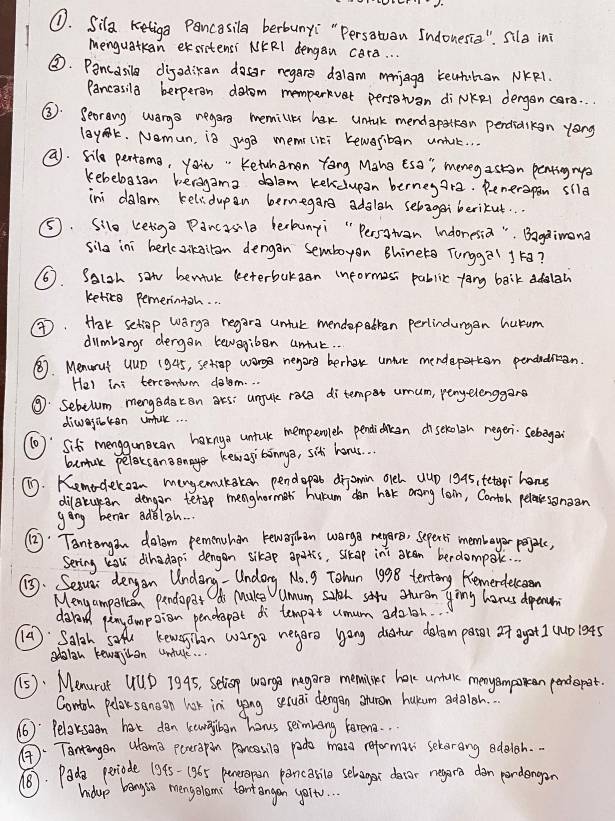 ①. Sila Ketiga Pancasila berbunyi "Persatuan Indonesia". Sila ini
menguatkan eksistensi NKRI dengan cara...
②. Pancasila dijadikan dasar negara dalam menjaga keutuhan NKRI.
Pancasila berperan dalam memperkuat persatuan di NKRI dengan cara...
③. Seorang warga negara memiliki hak untuk mendapatkan pendidikan yang
layak. Namun, ia juga memiliki kewajiban untuk...
④. Sila pertama, yaitu "Ketuhanan Yang Maha Esa", menegaskan pentingnya
kebebasan beragama dalam kehidupan bernegara. Penerapan sila
ini dalam kehidupan bernegara adalah sebagai berikut...
⑤. Sila ketiga Pancasila berbunyi "Persatuan Indonesia". Bagaimana
sila ini berkaikaitan dengan semboyan Bhineka Tunggal Ika?
⑥. Salah satu bentuk keterbukaan informasi publik yang baik adalah
ketika pemerintah...
⑦. Hak setiap warga negara untuk mendapatkan perlindungan hukum
diimbangi dengan kewajiban untuk...
⑧. Menurut UUD 1945, setiap warga negara berhak untuk mendapatkan pendidikan.
Hal ini tercantum dalam...
⑨. Sebelum mengadakan aksi unjuk rasa di tempat umum, penyelenggara
diwajibkan untuk...
⑩. Siti menggunakan haknya untuk memperoleh pendidikan di sekolah negeri. Sebagai
bentuk pelaksanaannya kewajibannya, siti harus...
⑪. Kemerdekaan mengemukakan pendapat dijamin oleh UUD 1945, tetapi harus
dilakukan dengan tetap menghormati hukum dan hak orang lain, Contoh pelaksanaan
yang benar adalah...
⑫. Tantangan dalam pemenuhan kewajiban warga negara, seperti membayar pajak,
sering kali dihadapi dengan sikap apatis, sikap ini akan berdampak...
⑬. Sesuai dengan Undang-Undang No.9 Tahun 1998 tentang Kemerdekaan
Menyampaikan Pendapat di Muka Umum, salah satu aturan yang harus dipenuhi
dalam penyampaian pendapat di tempat umum adalah...
⑭. Salah satu kewajiban warga negara yang diatur dalam pasal 27 ayat 1 UUD 1945
adalah kewajiban untuk...
⑮. Menurut UUD 1945, setiap warga negara memiliki hak untuk menyampaikan pendapat.
Contoh pelaksanaan hak ini yang sesuai dengan aturan hukum adalah...
⑯. Pelaksaan hak dan kewajiban harus seimbang karena...
⑰. Tantangan utama penerapan pancasila pada masa reformasi sekarang adalah...
⑱. Pada periode 1945-1965 penerapan pancasila sebagai dasar negara dan pandangan
hidup bangsa mengalami tantangan yaitu...